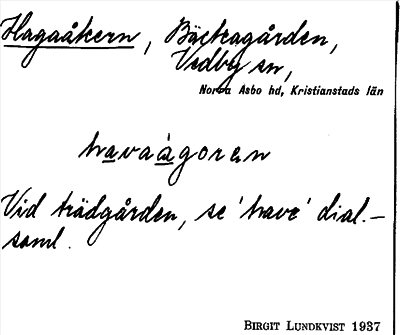 Hagaåkern, Bäckagården,
Vedby sn,
Norra Asbo hd, Kristianstads län
havaågoren
Vid trädgården, se 'have' dial.-
saml.
BIRGIT LUNDKVIST 1937